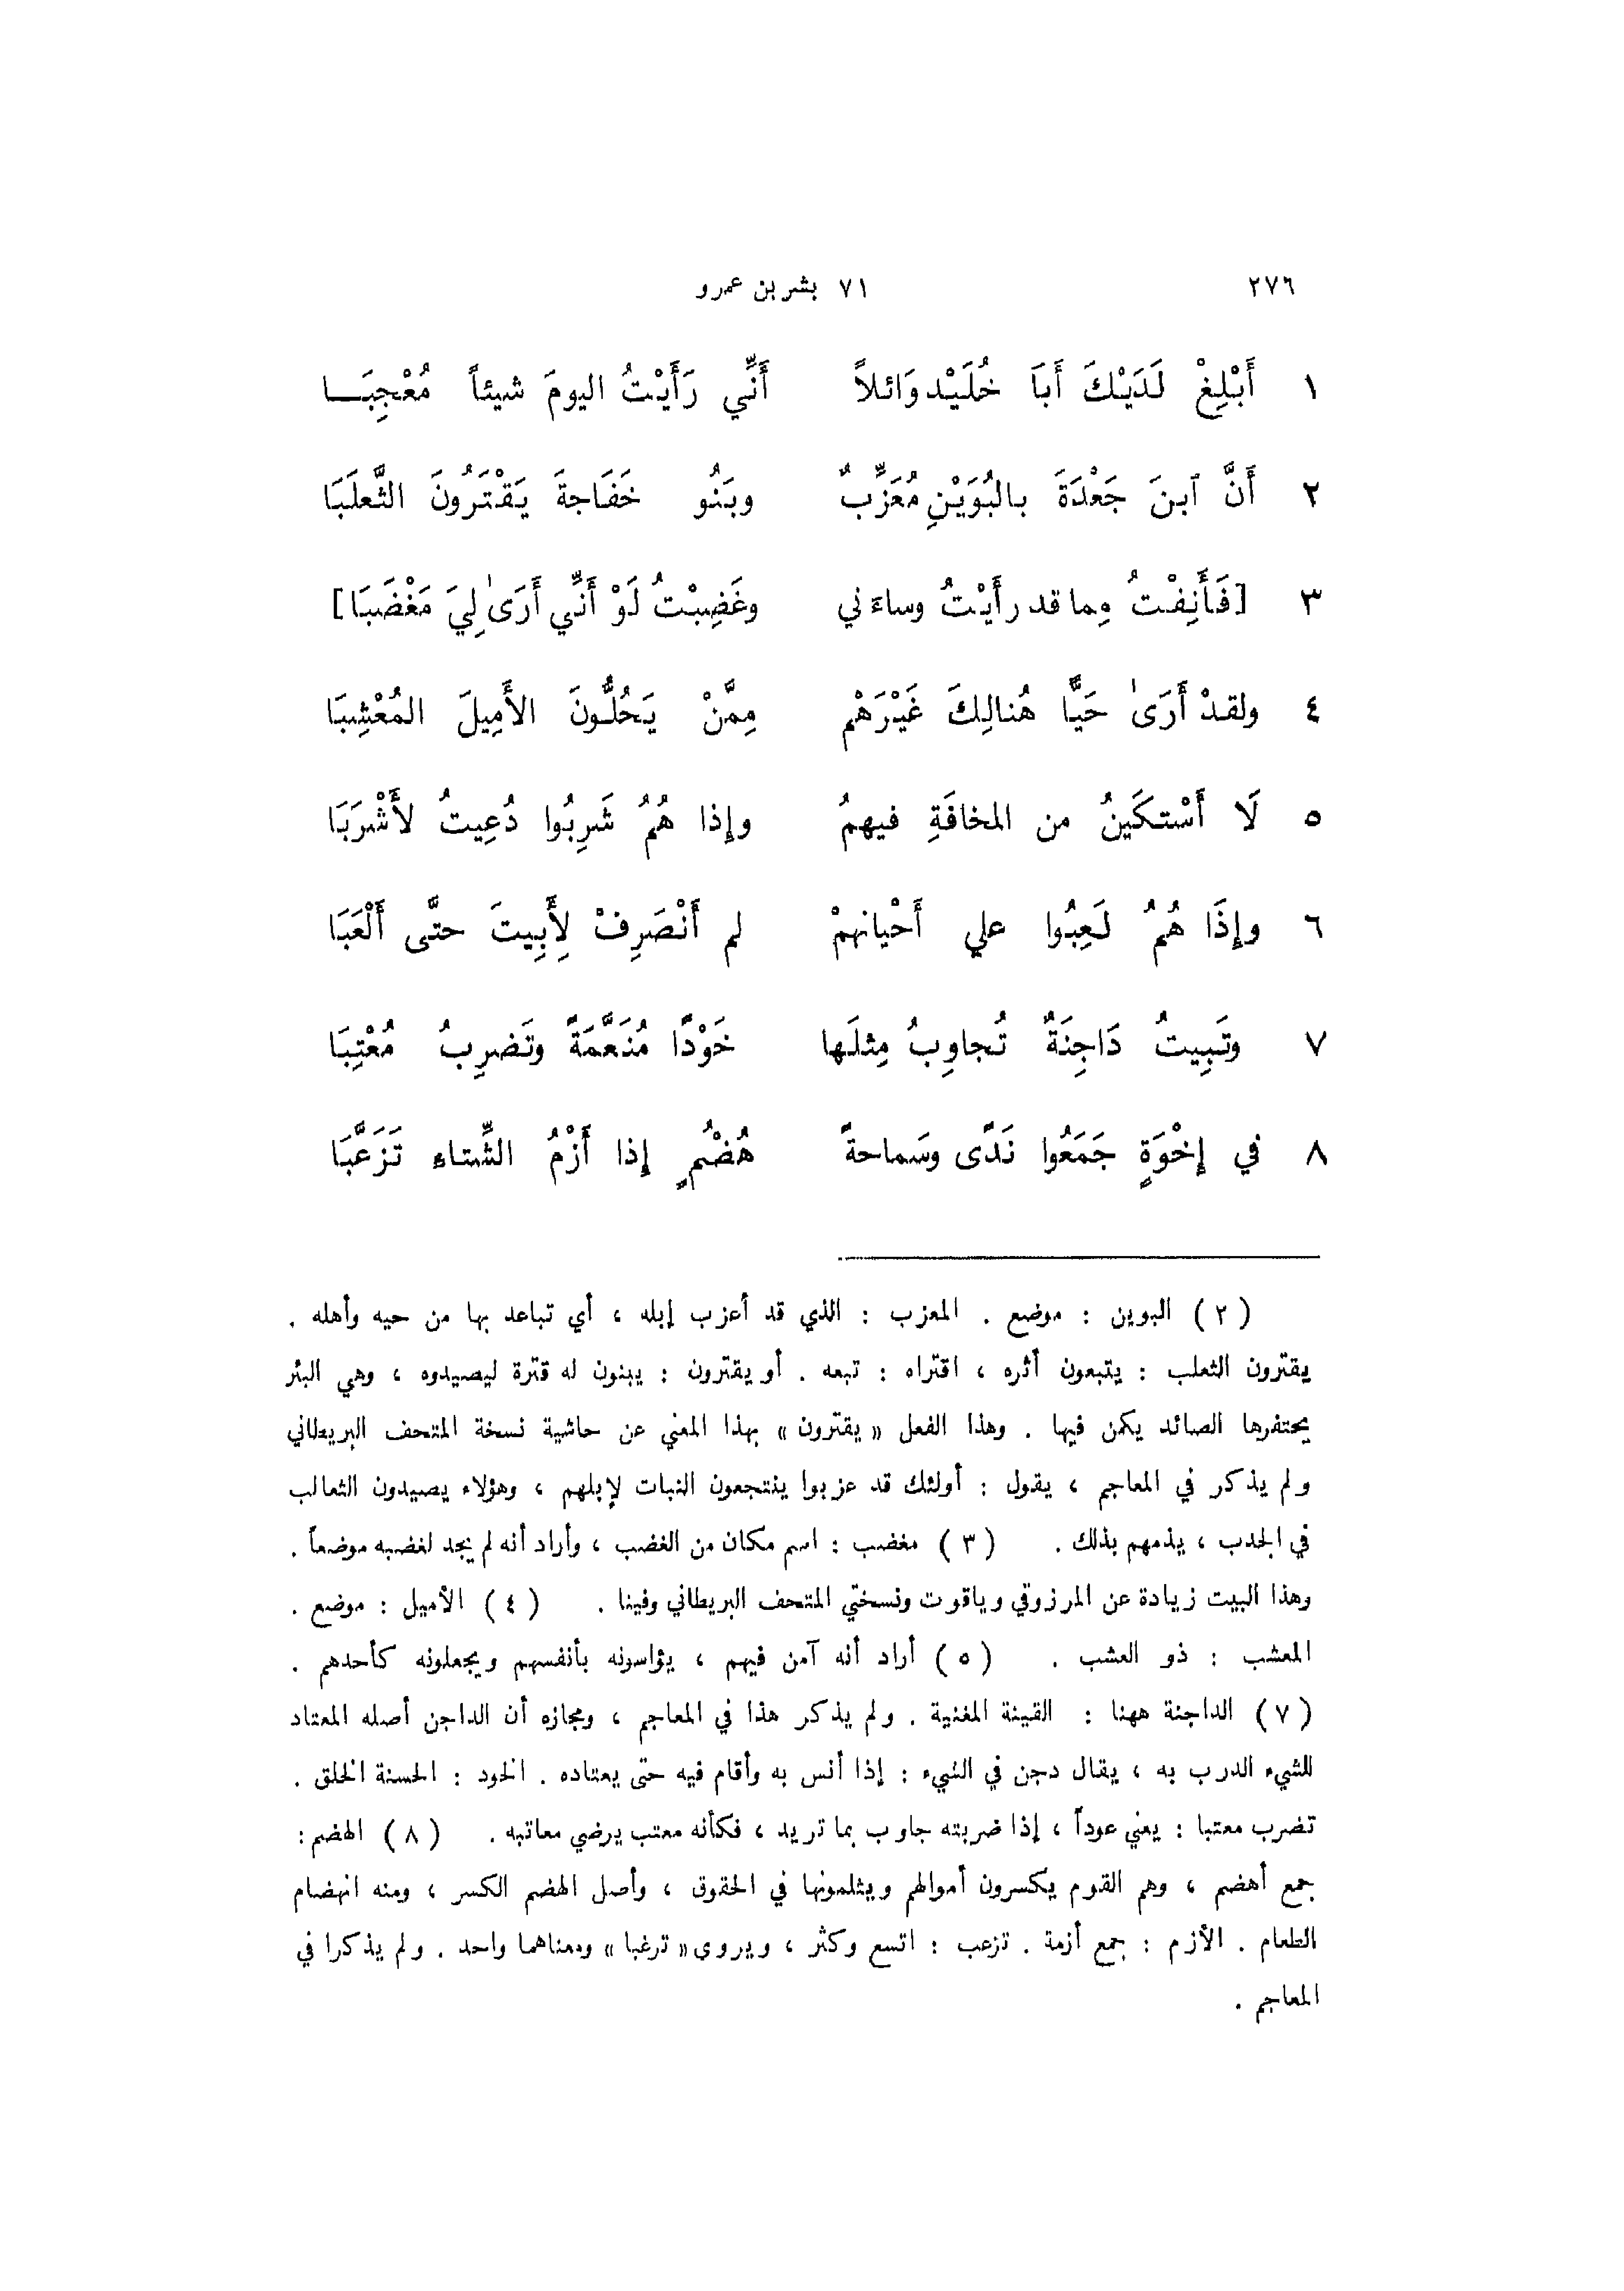 ٢٧٦ ٧١ بشر بن عمرو
١ أَبْلِغْ لَدَيْكَ أَبَا خُلَيْد وَائلاً أَنِّي رَأَيْتُ اليومَ شيئاً مُعْجِبَـــا
٢ أَنَّ ٱبنَ جَعْدَةَ بالبُوَيْنِ مُعَزِّبٌ وبَنُو خَفَاجةَ يَقْتَرُونَ الثَّعلَبَا
٣ [فَأَنِفْتُ مِما قد رأَيْتُ وساءَني وغَضِبْتُ لَوْ أَنِّي أَرَىٰ لِيَ مَغْضَبَا]
٤ ولقدْ أَرَىٰ حَيًّا هُنالِكَ غَيْرَهْم مِمَّنْ يَحُلُّونَ الأَمِيلَ المُعْشِبَا
٥ لَا أَسْتكَينُ من المخافَةِ فيهمُ وإذا هُمُ شَرِبُوا دُعِيتُ لأَشْرَبَا
٦ وإِذَا هُمُ لَعِبُوا علي أَحْيانهِمْ لم أَنْصَرِفْ لِأَبِيتَ حتَّى أَلْعَبَا
٧ وتَبِيتُ دَاجِنَةٌ تُجاوِبُ مِثلَها خَوْدًا مُنَعَّمَةً وتَضرِبُ مُعْتِبَا
٨ في إِخْوَةٍ جَمَعُوا نَدًى وسَماحةً هُضْمٍ إذا أَزْمُ الشِّتاء تَزَعَّبَا
(٢) البوين : موضع . المعزب : الذي قد أعزب إبله ، أي تباعد بها من حيه وأهله .
يقترون الثعلب : يتبعون أثره ، اقتراه : تبعه . أو يقترون : يبنون له قترة ليصيدوه ، وهي البئر
يحتفرها الصائد يكمن فيها . وهذا الفعل « يقترون » بهذا المعني عن حاشية نسخة المتحف البريطاني
ولم يذكر في المعاجم ، يقول : أولئك قد عزبوا ينتجعون النبات لإبلهم ، وهؤلاء يصيدون الثعالب
في الجدب ، يذمهم بذلك . (٣) مغضب : اسم مكان من الغضب ، وأراد أنه لم يجد لغضبه موضعاً .
وهذا البيت زيادة عن المرزوقي وياقوت ونسختي المتحف البريطاني وفينا . (٤) الأميل : موضع .
المعشب : ذو العشب . (٥) أراد أنه آمن فيهم ، يؤاسونه بأنفسهم ويجعلونه كأحدهم .
(٧) الداجنة ههنا : القينة المغنية . ولم يذكر هذا في المعاجم ، ومجازه أن الداجن أصله المعتاد
للشيء الدرب به ، يقال دجن في الشيء : إذا أنس به وأقام فيه حتى يعتاده . الخود : الحسنة الخلق .
تضرب معتبا : يعني عوداً ، إذا ضربته جاوب بما تريد ، فكأنه معتب يرضي معاتبه . (٨) الهضم :
جمع أهضم ، وهم القوم يكسرون أموالهم ويثلمونها في الحقوق ، وأصل الهضم الكسر ، ومنه انهضام
الطعام . الأزم : جمع أزمة . تزعب : اتسع وكثر ، ويروى « ترغبا » ومعناهما واحد . ولم يذكرا في
المعاجم .